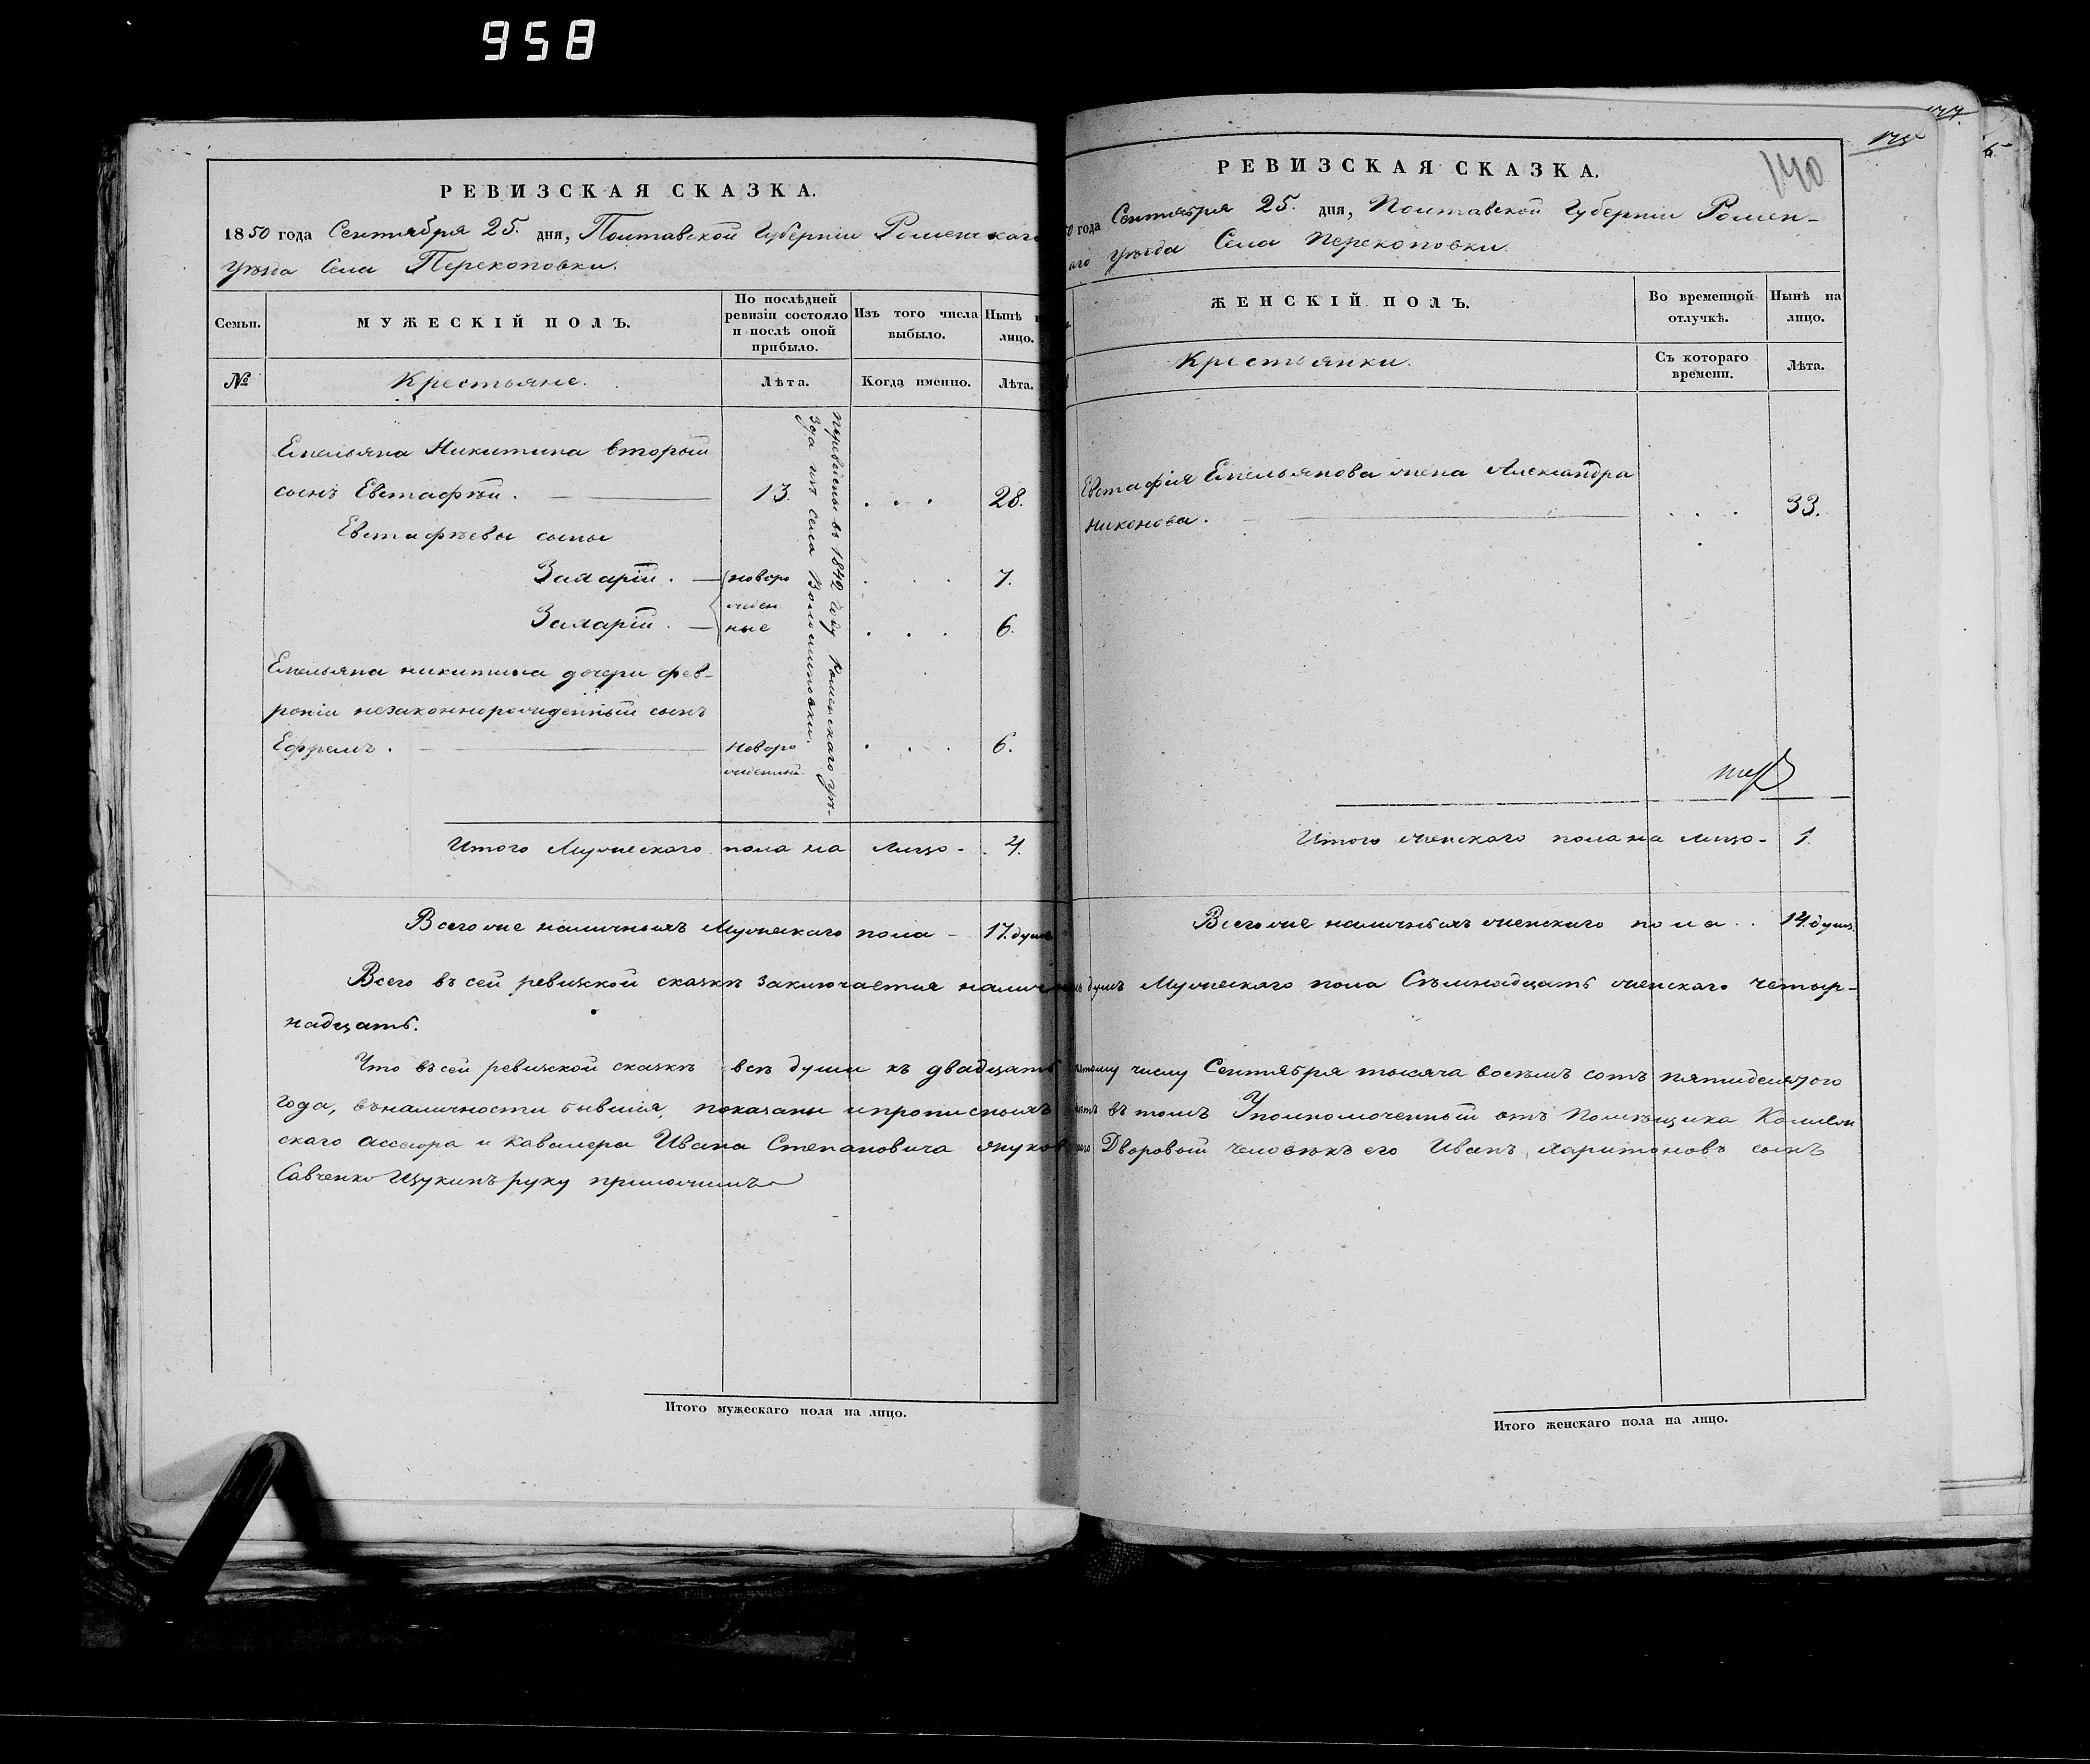 958
РЕВИЗСКАЯ СКАЗКА.
1850 года Сентября 25. дня, Полтавской Губерніи Роменскаго
Уѣзда Села Перекоповки.
Семьи.
МУЖЕСКІЙ ПОЛЪ.
По послѣдней ревизіи состояло и послѣ оной прибыло.
Изъ того числа выбыло.
Нынѣ на лицо.
№
Крестьяне.
Лѣта.
Когда именно.
Лѣта.
Емельяна Никитина вторый
сынъ Евстафѣй. 13. . . . 28.
Евстафѣевы сыны
Захарій. (новоро . . . 7.
жден
Захарій. ные . . . 6.
Емельяна никитина дочери фев-
роніи незаконнорожденный сынъ
Ефремъ. новоро . . . 6.
жденный.
Переведены въ 1842 году Роменскаго уѣ-
зда изъ села Волошиновки.
Итого Мужескаго пола на лицо - 4.
Всего же наличныхъ Мужескаго пола - 17. душъ
Всего въ сей ревизской сказкѣ заключается налич
надцать.
Что въ сей ревизской сказкѣ всѣ души къ двадцать
года, въ наличности бывшія, показаны и прописныхъ
скаго ассесора и Кавалера Ивана Степановича
Савченко Щукинъ руку приложилъ
Итого мужескаго пола на лицо.
РЕВИЗСКАЯ СКАЗКА.
140
50 года Сентября 25. дня, Полтавской Губерніи Ромен-
аго Уѣзда Села Перекоповки.
ЖЕНСКІЙ ПОЛЪ.
Во временной отлучкѣ.
Нынѣ на лицо.
Крестьянки.
Съ котораго времени.
Лѣта.
Евстафія Емельянова жена Александра
Никонова. . . . 33.
Итого женскаго пола на лицо - 1.
Всего же наличныхъ женскаго пола . . 14. душъ.
душъ Мужескаго пола Семнадцать женскаго четыр-
пятому числу Сентября тысяча восемь сотъ пятидесятого
въ томъ Уполномоченный отъ Помѣщика Коллеж
Дворовый человѣкъ его Иванъ Харитоновъ сынъ
Итого женскаго пола на лицо.